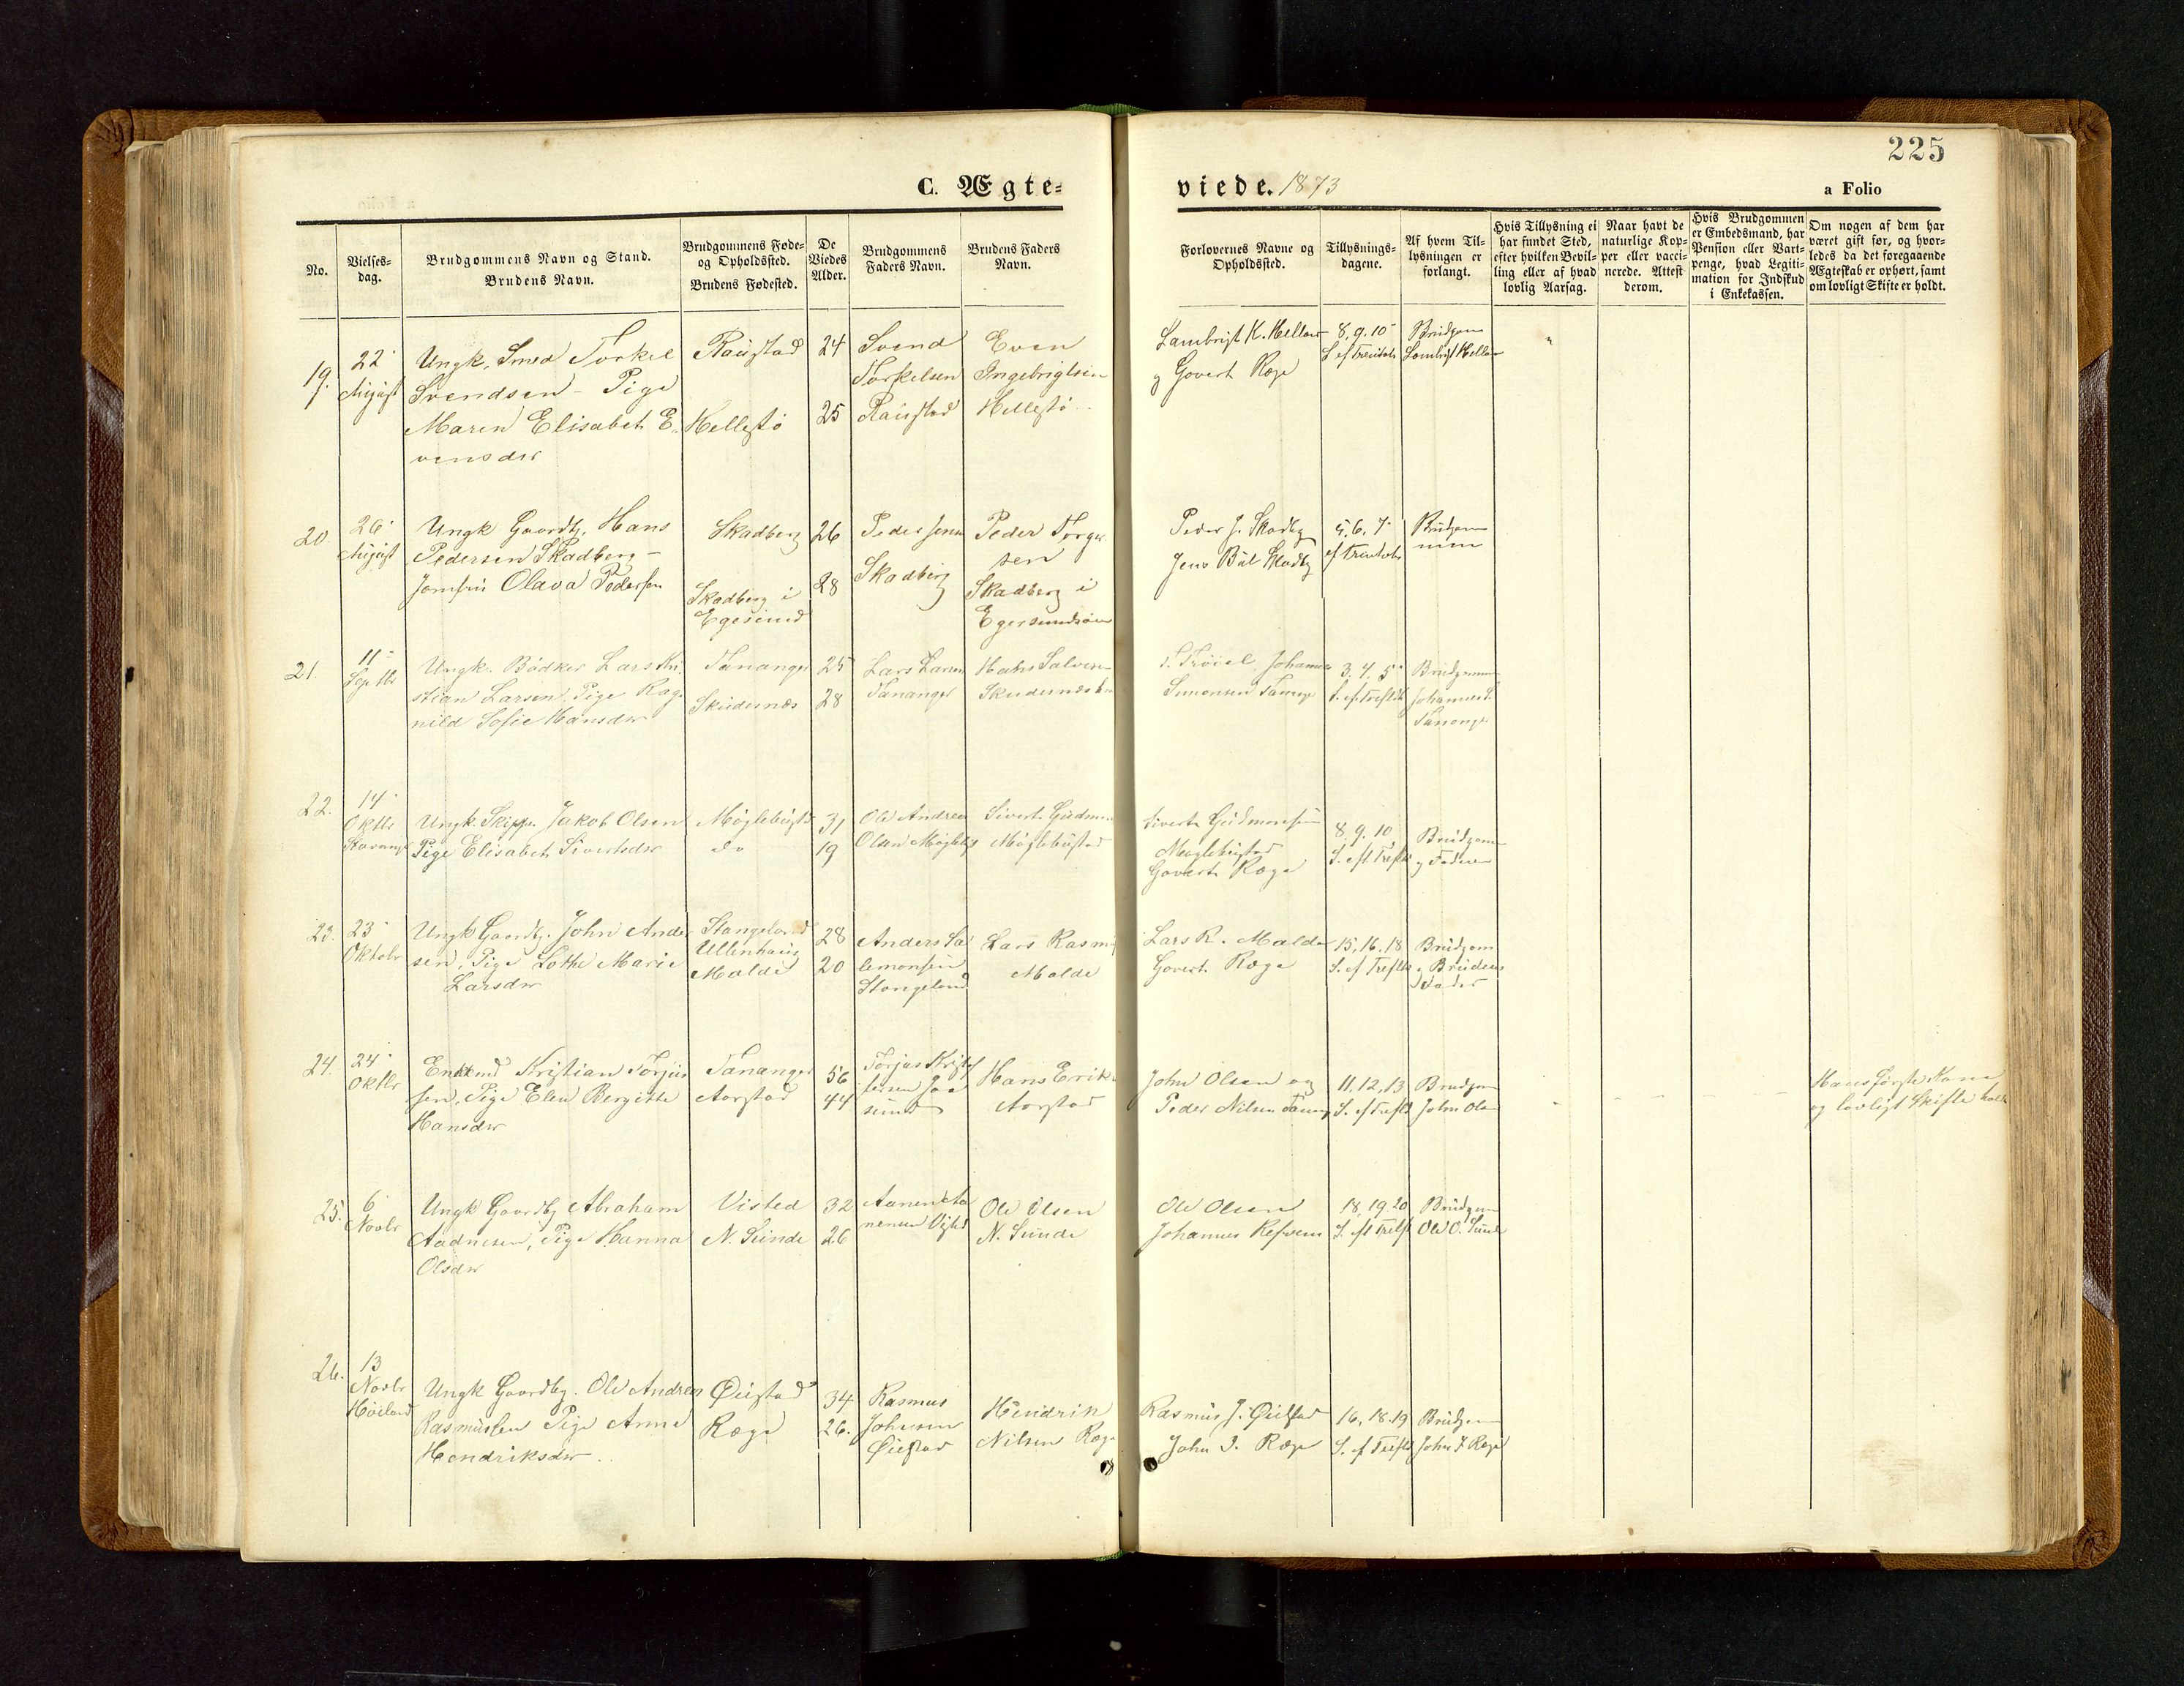 225
C. Ægte-
viede. 1873
a Folio
No.
Vielses-
dag.
Brudgommens Navn og Stand.
Brudens Navn.
Brudgommens Føde-
og Opholdssted.
Brudens Fødested.
De
Viedes
Alder.
Brudgommens
Faders Navn.
Brudens Faders
Navn.
Forlovernes Navne og
Opholdssted.
Tillysnings-
dagene.
Af hvem Til-
lysningen er
forlangt.
Hvis Tillysning ei
har fundet Sted,
efter hvilken Bevil-
ling eller af hvad
lovlig Aarsag.
Naar havt de
naturlige Kop-
per eller vacci-
nerede. Attest
derom.
Hvis Brudgommen
er Embedsmand, har
Pension eller Vart-
penge, hvad Legiti-
mation for Indskud
i Enkekassen.
Om nogen af dem har
været gift før, og hvor-
ledes da det foregaaende
Ægteskab er ophørt, samt
om lovligt Skifte er holdt.
19.
22
August
Ungk. Smed Torkel
Svendsen - Pige
Maren Elisabet E-
vensdr
Raustad
Hellestø
24
25
Svend
Torkelsen
Raustad
Even
Ingebrigtsen
Hellestø
Lambrigt K. Hellan
og Govert Ræge
8, 9, 10
Brudgom
20.
26
August
Ungk Gaardbr. Hans
Pedersen Skadberg -
Olava Pedersen
Skadberg
Skadberg i
Egesund
26
28
Peder
Skadberg
Peder Torger
sen
Skadberg i
Peder J. Skadbg
Jens Skadbg
5, 6, 7
21.
11
Septbr
Ungk. Bødker Lars Kri
stian Larsen, Pige Rag
nild Sofie Hansdr
Tananger
Skudesnæs
25
28
Lars Larsen
Tananger
Hans Salvesen
Johannes
Simonsen
3, 4, 5
Brudgommen
Johannes S.
Tananger
22.
14
Oktbr
Stavanger
Ungk. Skipper Jakob Olsen
Pige Elisabet Sivertsdr
Møglebustd
do
31
19
Ole Andrea
Olsen
Sivert Gudm
Møglebustad
Sivert Gudmonsen
Møglebustad
Govert Ræge
8, 9, 10
Brudgom
og Faderen
23.
23
Oktobr
Ungk Gaardbr. John Ander
sen, Pige Lothe Marie
Larsdr
Stangeland
Ullenhaug
Malde
28
20
Anders Sa
lemonsen
Stangeland
Lars Rasm
Malde
Lars R. Malde
Govert Ræge
15, 16, 18
Brudgom
og Brudens
Fader
24.
24
Oktbr
Enkemd Kristian Torjus
sen, Pige Elen Bergitte
Hansdr
Tananger
Aarstad
56
44
Torjus
Jaa
sund
Hans Erik
Aarstad
John Olsen og
Peder Nilsen
11, 12, 13
Brudgom
John Ols
Hans første Kone
og lovligt Skifte holdt
25.
6
Novbr
Ungk Gaardbg Abraham
Aadnesen, Pige Hanna
Olsdr
Visted
N. Sunde
32
26
Ole Olsen
N. Sunde
Ole Olsen
Johannes
18, 19, 20
Brudgom
Ole O. Sunde
26.
13
Novbr
Høiland
Ungk Gaardbg. Ole Andreas
Rasmussen Pige Anne
Hendriksdr
Øiestad
Ræge
34
26.
Rasmus
Johnsen
Øiestad
Hendrik
Nilsen Ræge
Rasmus J. Øiestad
John I. Ræge
16, 18, 19
Brudgom
John I Ræge